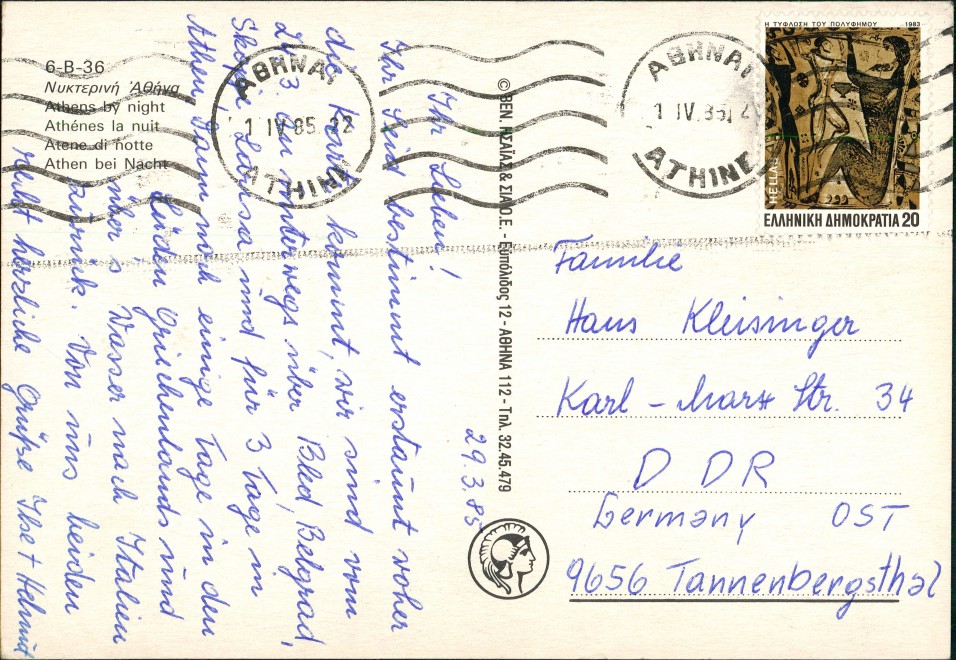 6-B-36
Νυκτερινή Ἀθήνα
Athens by night
Athénes la nuit
Atene di notte
Athen bei Nacht
29.3.85
Ihr Lieben!
Ihr seid bestimmt erstaunt woher
die Karte kommt, wir sind vom
23.3. an unterwegs über Bled, Belgrad,
Skopje Larissa und für 3 Tage in
Athen. Dann noch einige Tage in den
Süden Griechenlands und
über's Wasser nach Italien
zurück. Von uns beiden
recht herzliche Grüße Ilse + Helmut
© ΒΕΝ. ΗΣΑΪΑΣ & ΣΙΑ Ο.Ε. - Εὐπόλδος 12 - ΑΘΗΝΑ 112 - Τηλ. 32.45.479
ΑΘΗΝΑΙ
1 IV 85 22
ATHINE
ΑΘΗΝΑΙ
1 IV 85 2
ATHINE
Η ΤΥΦΛΩΣΗ ΤΟΥ ΠΟΛΥΦΗΜΟΥ 1983
HELLAS
ΕΛΛΗΝΙΚΗ ΔΗΜΟΚΡΑΤΙΑ 20
Familie
Hans Kleisinger
Karl-Marx Str. 34
DDR
Germany OST
9656 Tannenbergsthal